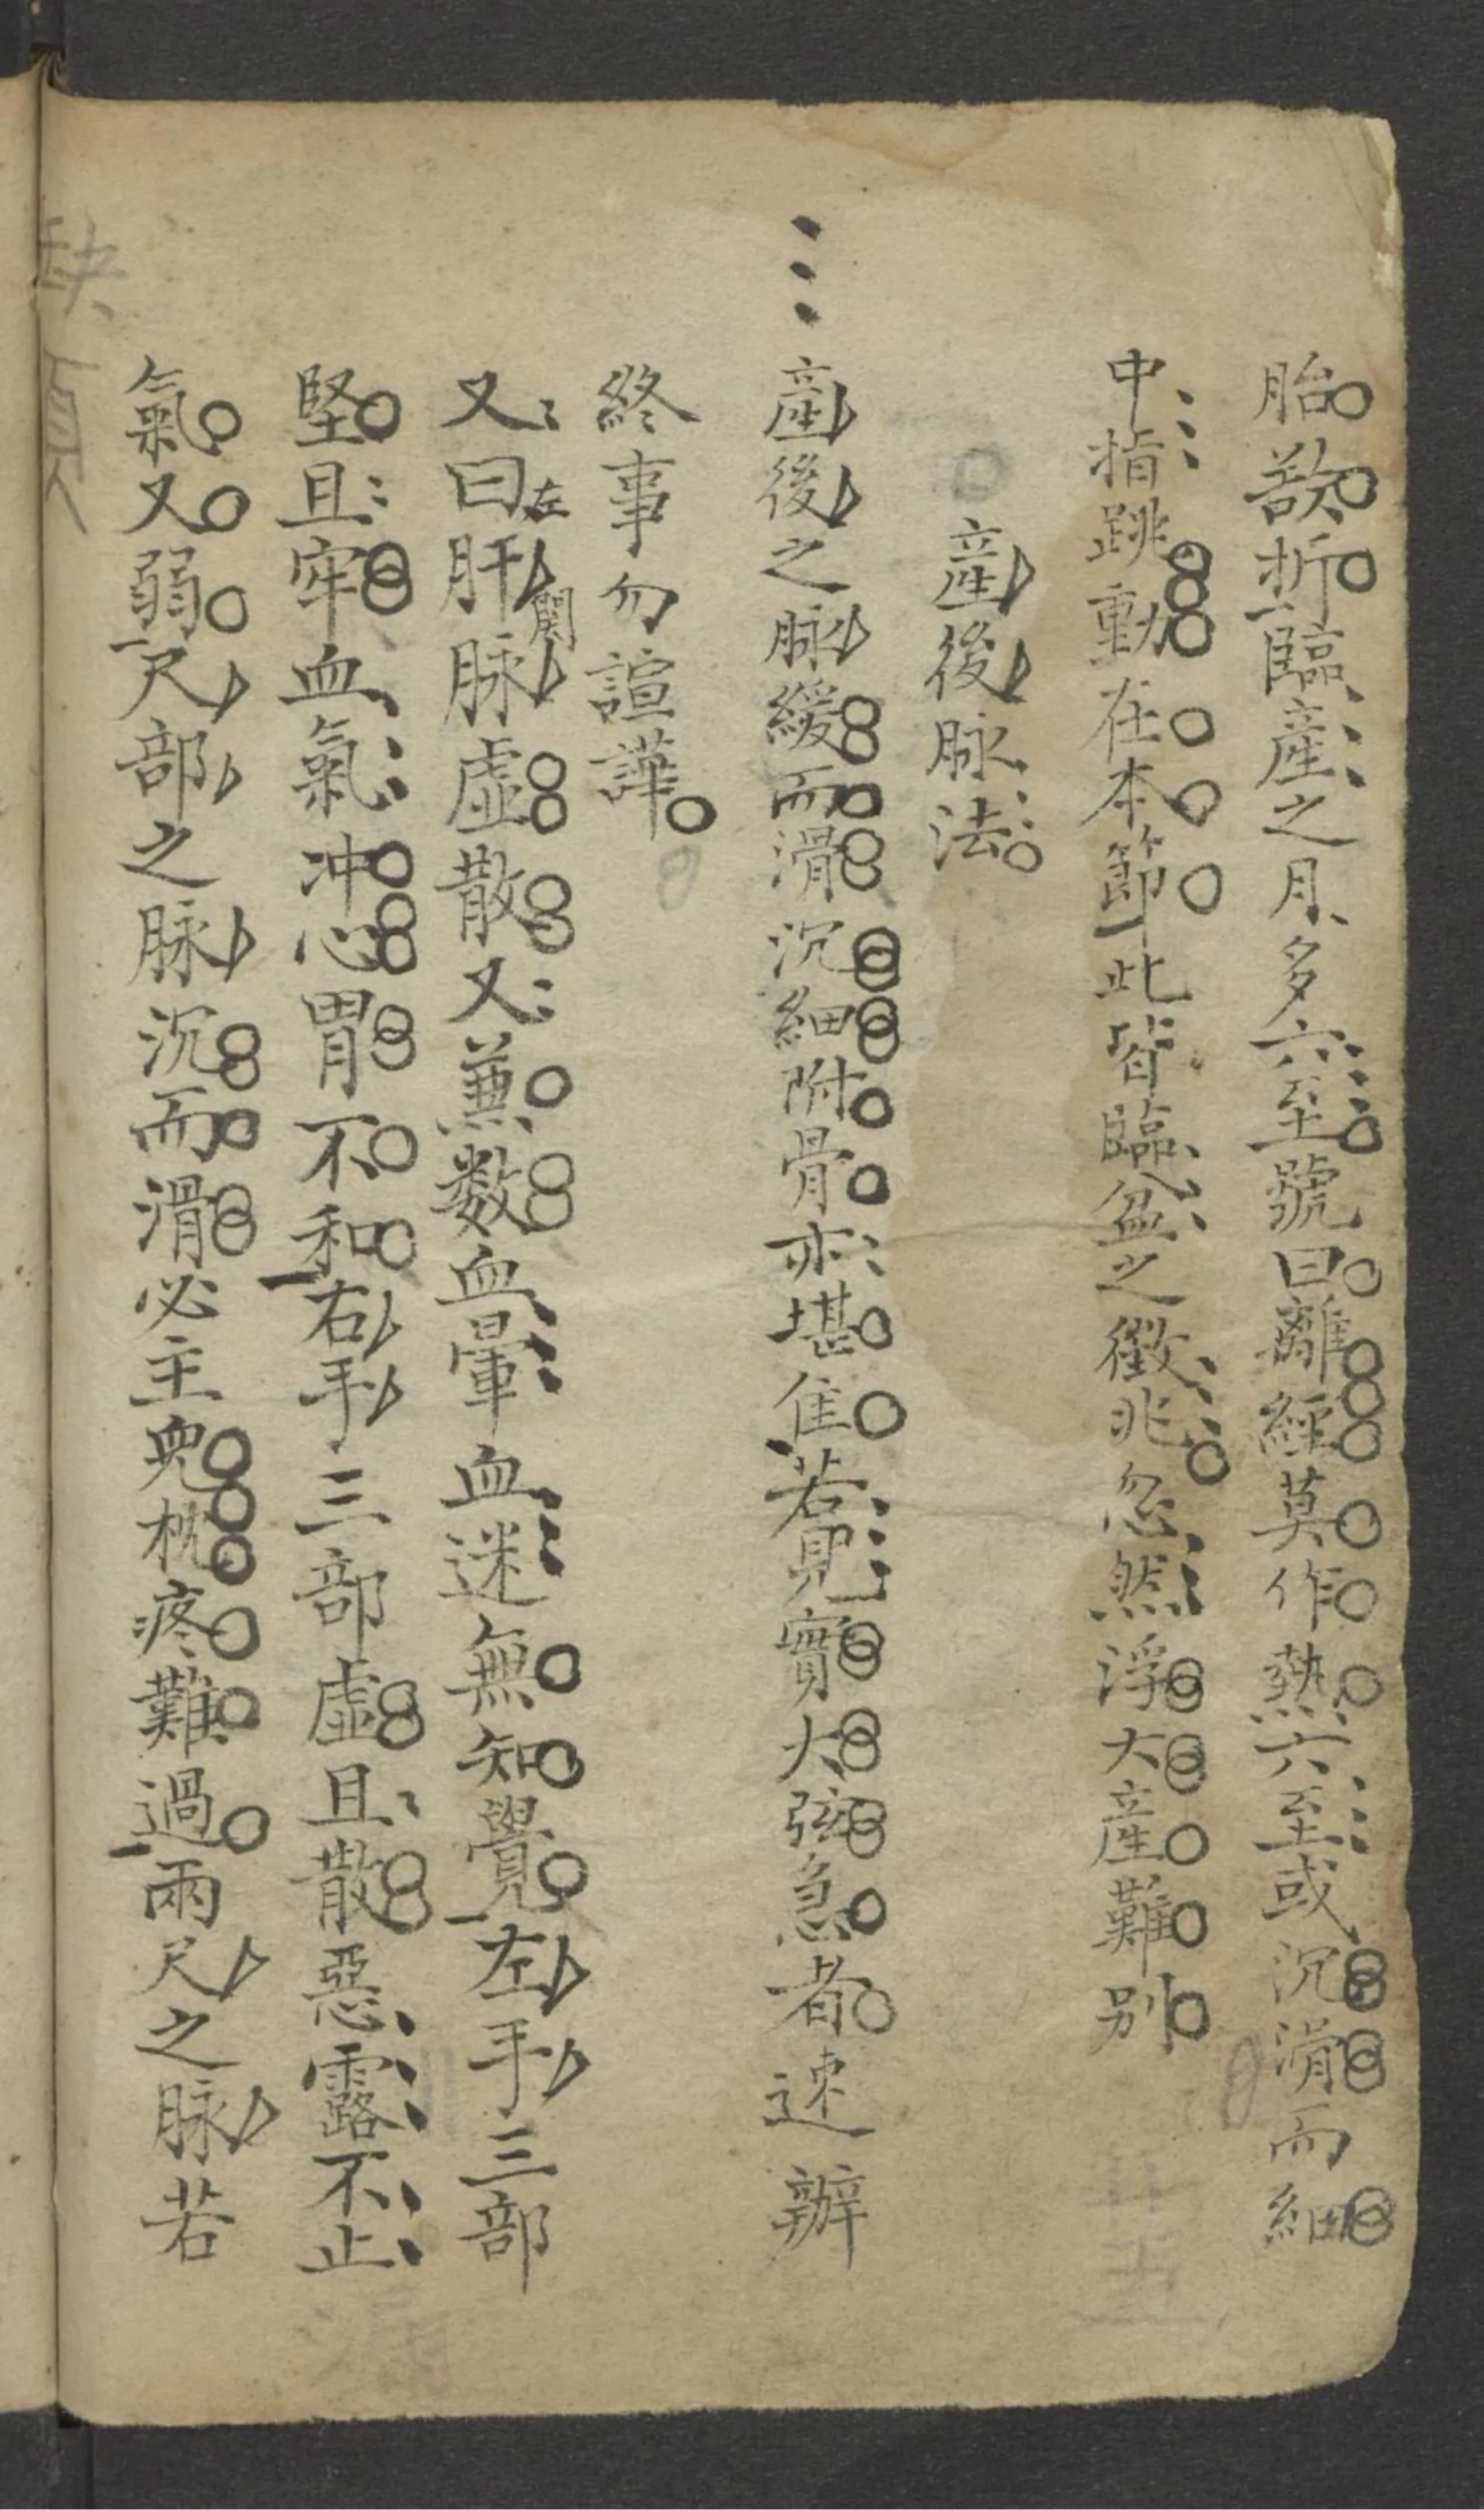 胎欲折臨產之月多六至號曰離經莫作熱六至或沉滑而細
中指跳動在本節此皆臨盆之徵兆忽然浮大產難別
產後脉法
產後之脉緩而滑沉細附骨亦堪佳若見實大弦急者速辦
終事勿諠譁
又曰左肝關脉虛散又兼数血暈血迷無知覺左手三部
堅且牢血氣冲心胃不和右手三部虛且散惡露不止
氣又弱尺部之脉沉而滑必主兒枕疼難過兩尺之脉若
缺頁